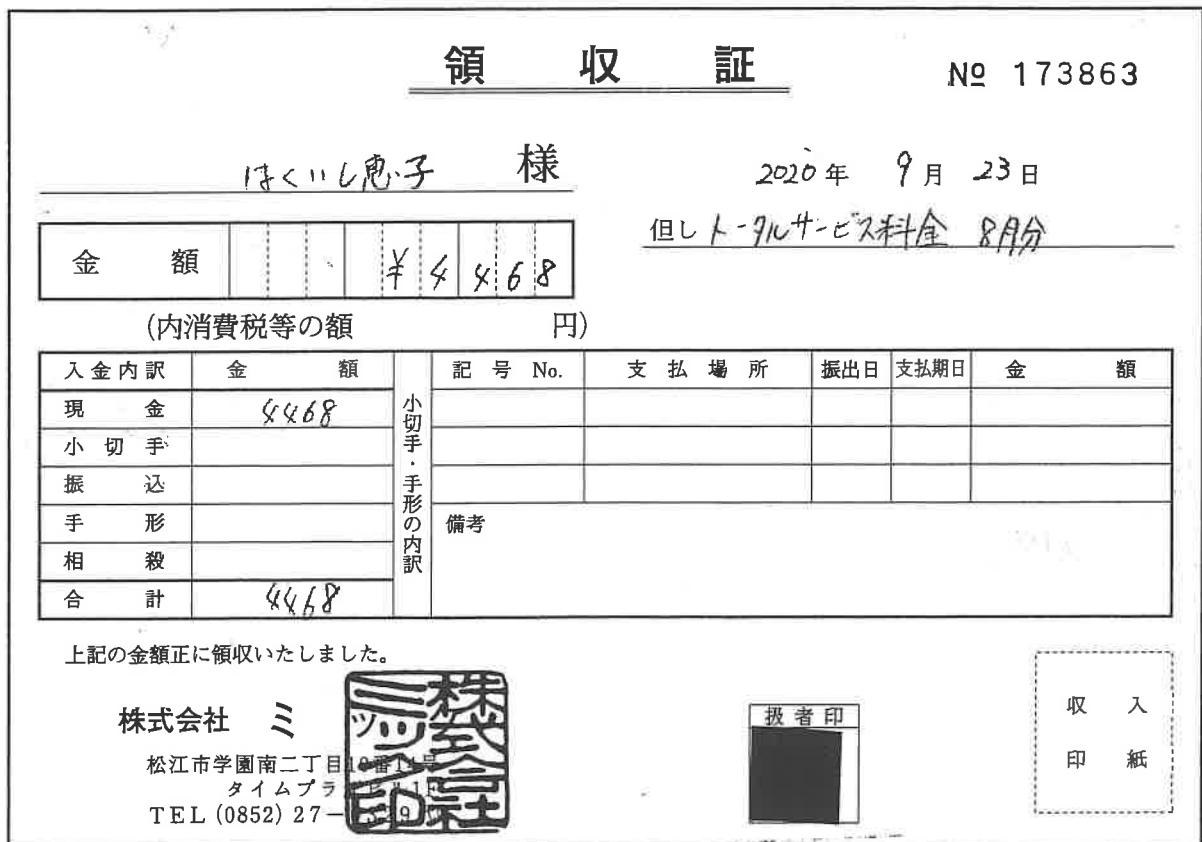 領収証
№ 173863
ほくいし恵子 様
2020年 9月 23日
但し トータルサービス料金 8月分
金額 ¥4468
(内消費税等の額 円)
入金内訳 金額
現金 4468
小切手
振込
手形
相殺
合計 4468
小切手・手形の内訳
記号No. 支払場所 振出日 支払期日 金額
備考
上記の金額正に領収いたしました。
株式会社 ミツ
株式会社ミック印
松江市学園南二丁目
タイムプラ
TEL (0852) 27-
扱者印
収入
印紙